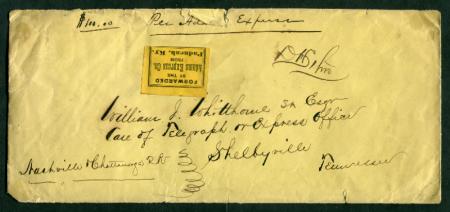 $100.00 Per Adams Express
FORWARDED
BY THE
Adams Express Co.
FROM
Paducah, Ky.
William J. Whitthorne Sr Esqr
Care of Telegraph or Express Office
Shelbyville
Tennessee
Nashville & Chattanooga R R